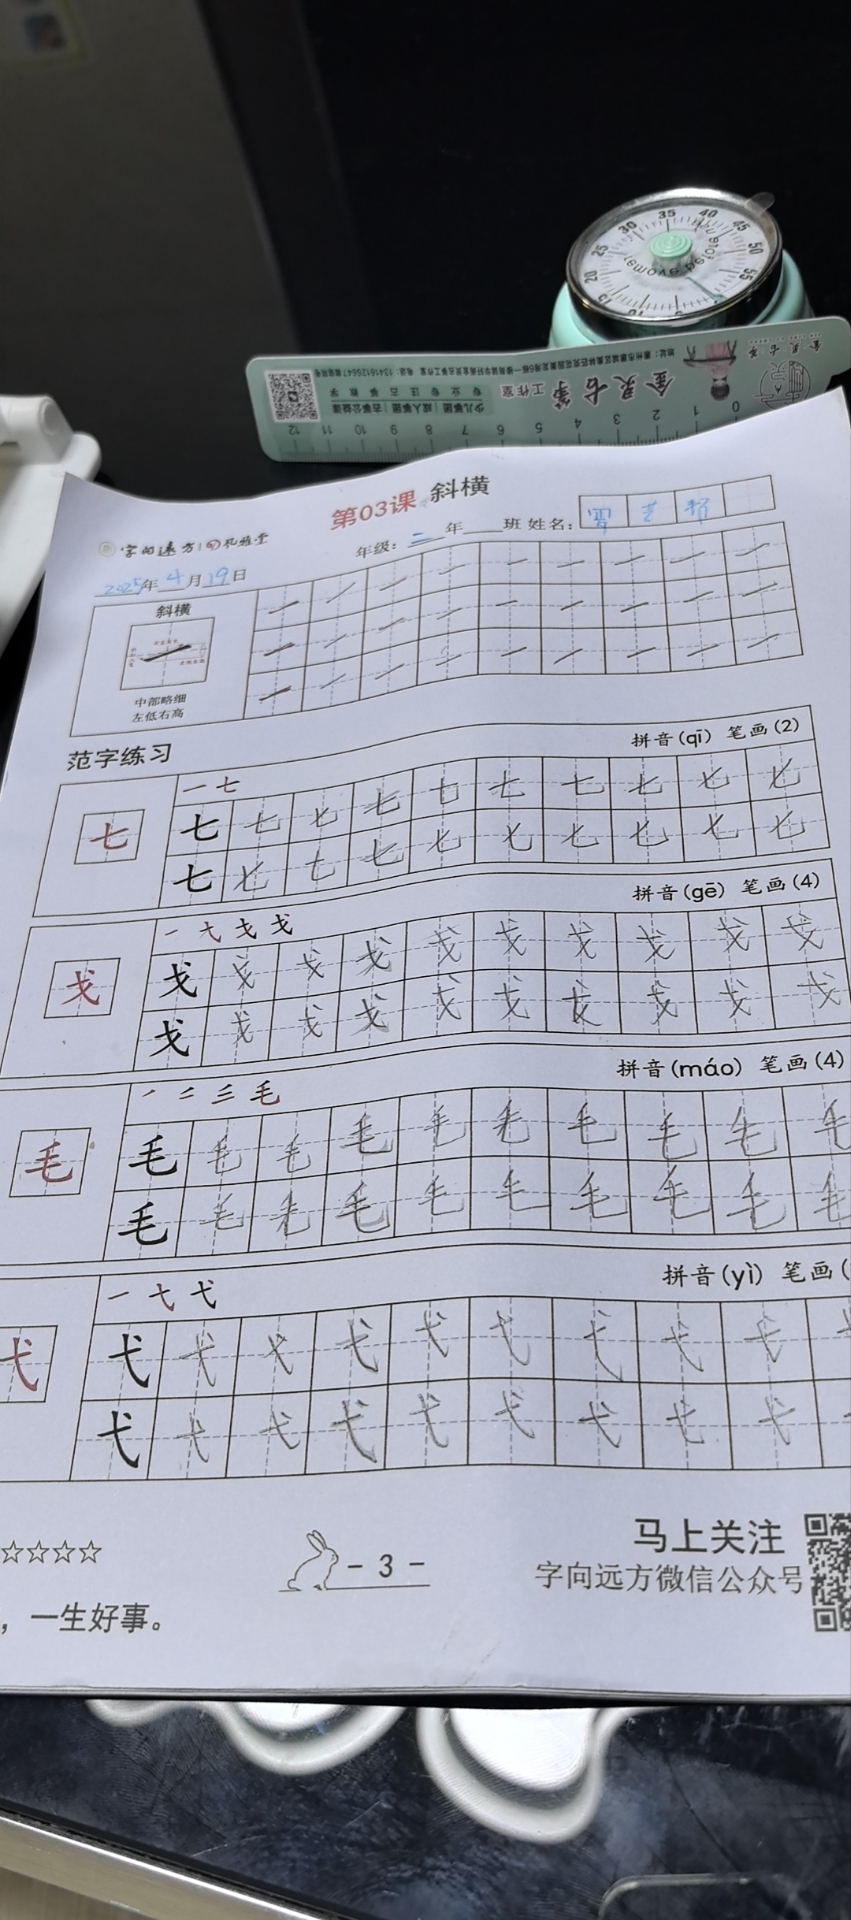 20 25 30 35 40 45 50 55
remove adsorb
金灵书笔 工作室
少儿掌团 | 成人掌团 | 古掌公益课
12 11 10 9 8 7 6 5 4 3 2 1 0
第03课 斜横
字向远方
年级：二年 班 姓名：
2025年4月19日
斜横
中部略细
左低右高
范字练习
拼音(qī) 笔画(2)
一 七
七 七 七 七 七 七 七 七 七 七 七
七 七 七 七 七 七 七 七 七 七
拼音(gē) 笔画(4)
一 弋 戈 戈
戈 戈 戈 戈 戈 戈 戈 戈 戈 戈 戈
戈 戈 戈 戈 戈 戈 戈 戈 戈 戈
拼音(máo) 笔画(4)
毛
毛 毛 毛 毛 毛 毛 毛 毛 毛 毛 毛
毛 毛 毛 毛 毛 毛 毛 毛 毛 毛
拼音(yì) 笔画(
一 七 弋
弋 弋 弋 弋 弋 弋 弋 弋 弋 弋
弋 弋 弋 弋 弋 弋 弋 弋 弋
☆☆☆☆
- 3 -
马上关注
字向远方微信公众号
，一生好事。